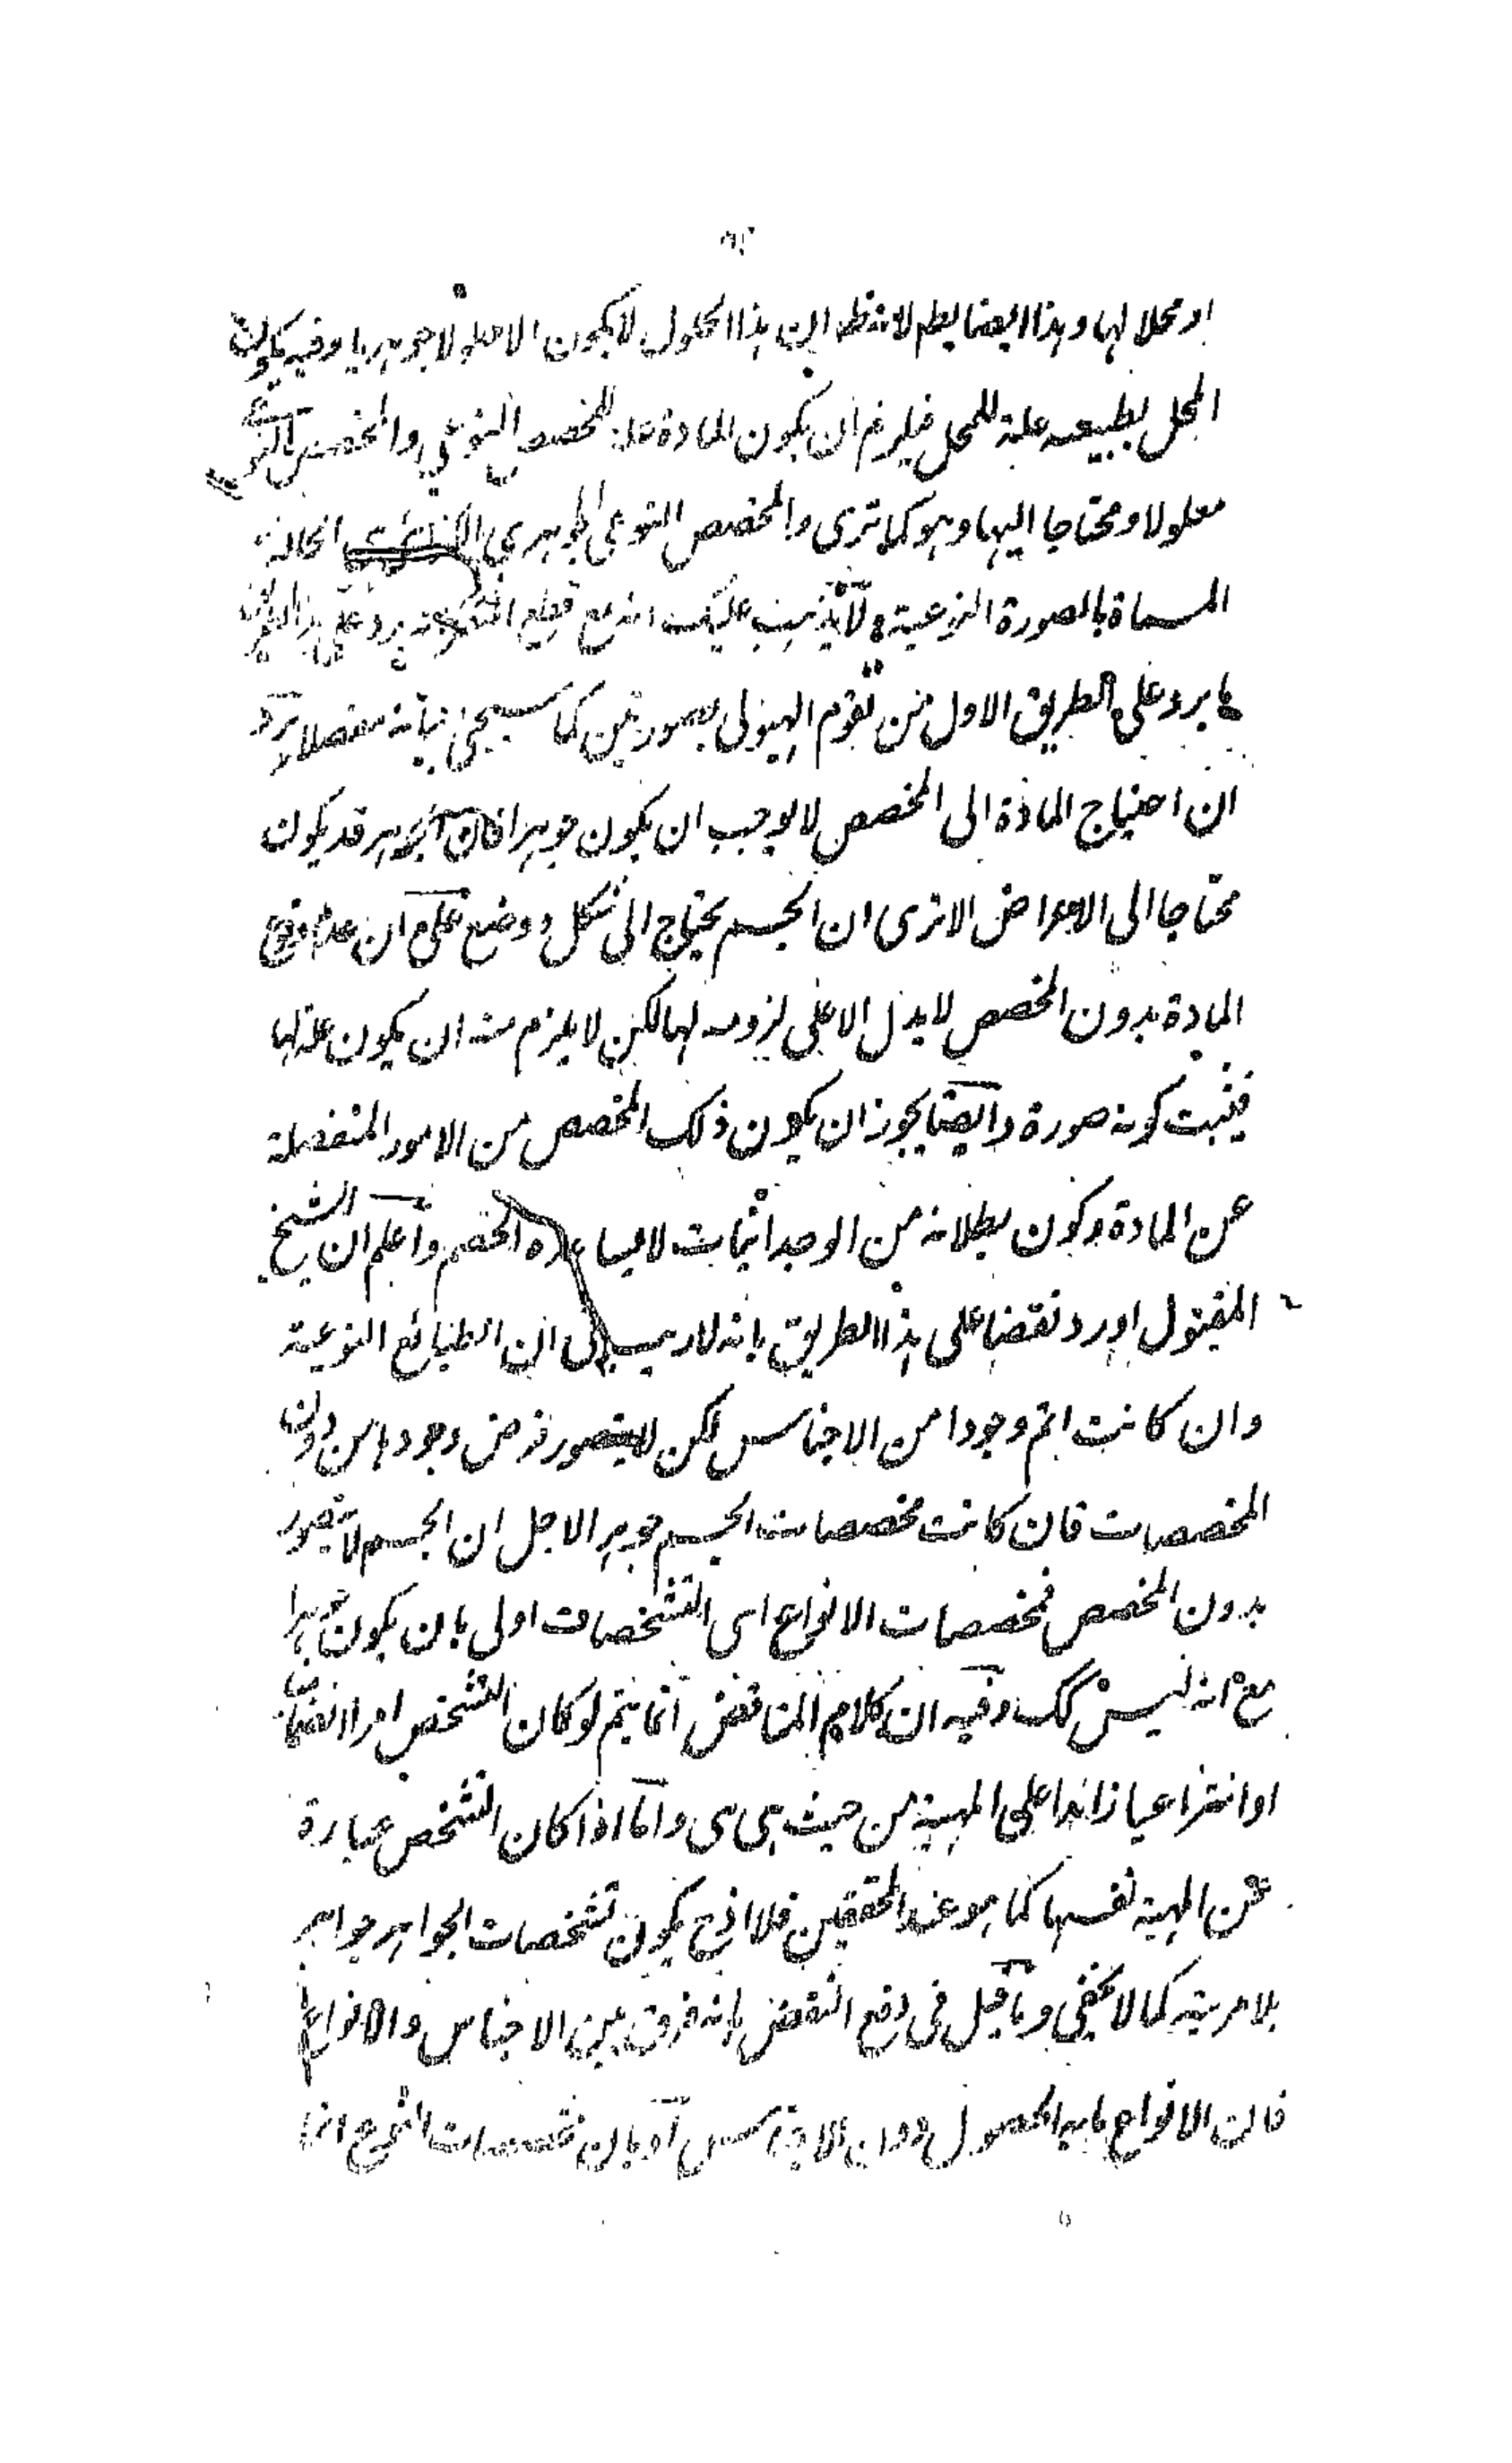 او محلا لها وهذا ايضا يطم لانه ظ ان هذا الحلول لا يكون الا حلولا جوهريا وفيه يكون
المحل بطبيعه علة للمحل فيلزم ان يكون المادة علة للمخصص النوعي والمخصص
معلولا ومحتاجا اليها وهو كما ترى والمخصص النوعي الجوهري الحالة
المسماة بالصورة النوعية ولا يذهب عليك انه مع قطع يرد على
ما يرد على الطريق الاول من تقوم الهيولى بصورتين كما سيجئ بيانه مفصلا يرد
ان احتياج المادة الى المخصص لا يوجب ان يكون جوهرا فان الجوهر قد يكون
محتاجا الى الاعراض الا ترى ان الجسم يحتاج الى شكل ووضع فعلم ان عدم
المادة بدون المخصص لا يدل الا على لزومه لها لكن لا يلزم منه ان يكون علة لها
فيثبت كونه صورة وايضا يجوز ان يكون ذلك المخصص من الامور المنفصلة
عن المادة وكون بطلانه من الوجدانيات لا يساعده الخصم واعلم ان الشيخ
المقتول اورد نقضا على هذا الطريق بانه لا ريب في ان الطبائع النوعية
وان كانت اتم وجودا من الاجناس لكن لا يتصور فرض وجودها من دون
المخصصات فان كانت مخصصات الجسم جوهرا لاجل ان الجسم لا يتصور
بدون المخصص فمخصصات الانواع اى التشخصات اولى بان يكون جوهرا
مع انه ليس كك وفيه ان كلام المناقض انما يتم لو كان التشخص امرا انضماميا
او انتزاعيا زائدا على المهية من حيث هى هى واما اذا كان التشخص عبارة
عن المهية نفسها كما هو عند المحققين فلا اذ ح يكون تشخصات الجواهر جواهر
بلا مرية كما لا يخفى وما قيل فى دفع النقض بانه فرق بين الاجناس والانواع
فان الانواع الحصول دون الاجناس او بان مخصصات النوع انما